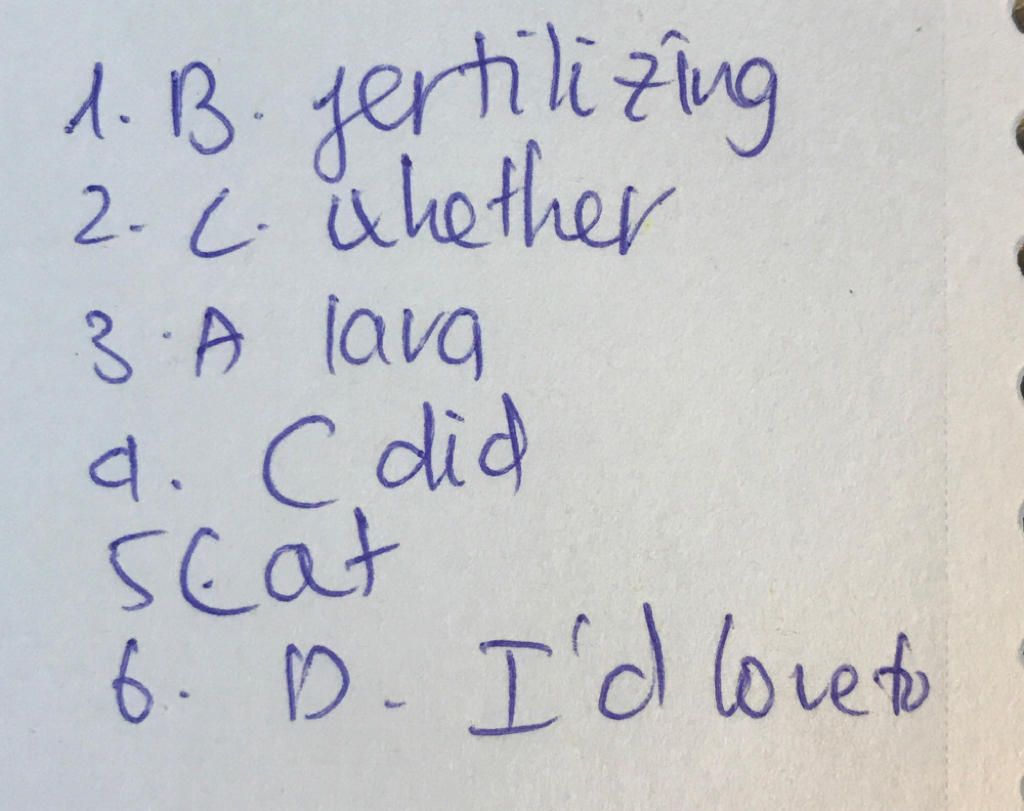 1. B. fertilizing
2. C. whether
3. A lava
4. C did
5 C. at
6. D. I'd love to